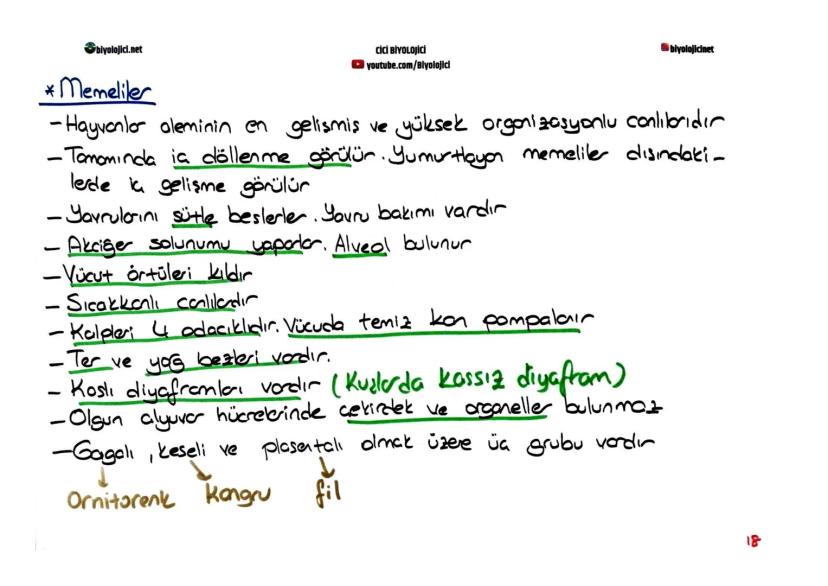 biyolojici.net
CİCİ BİYOLOJİCİ
youtube.com/Biyolojici
biyolojicinet
* Memeliler
- Hayvanlar aleminin en gelişmiş ve yüksek organizasyonlu canlılarıdır
- Tamamında iç döllenme görülür. Yumurtlayan memeliler dışındaki-
lerde iç gelişme görülür
- Yavrularını sütle beslerler. Yavru bakımı vardır
- Akciğer solunumu yaparlar. Alveol bulunur
- Vücut örtüleri kıldır
- Sıcakkanlı canlılardır
- Kalpleri 4 odacıklıdır. Vücuda temiz kan pompalanır
- Ter ve yağ bezleri vardır.
- Kaslı diyaframları vardır (Kuşlarda kassız diyafram)
- Olgun alyuvar hücrelerinde çekirdek ve organeller bulunmaz
- Gagalı, keseli ve plasentalı olmak üzere üç grubu vardır
Ornitorenk Kanguru fil
18